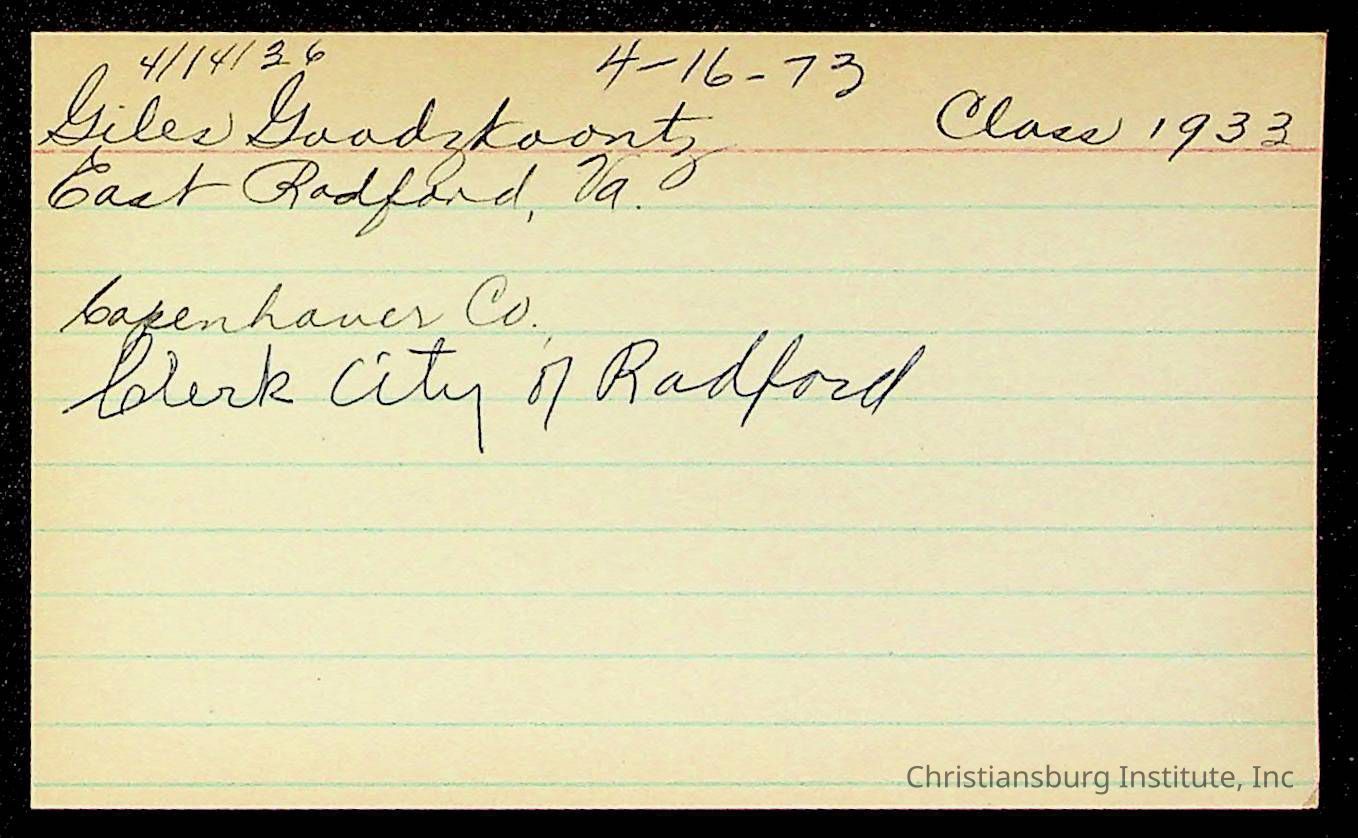 4/14/36 4-16-73
Giles Goodzkoontz Class 1933
East Radford, Va.
Copenhaver Co.
Clerk City of Radford
Christiansburg Institute, Inc